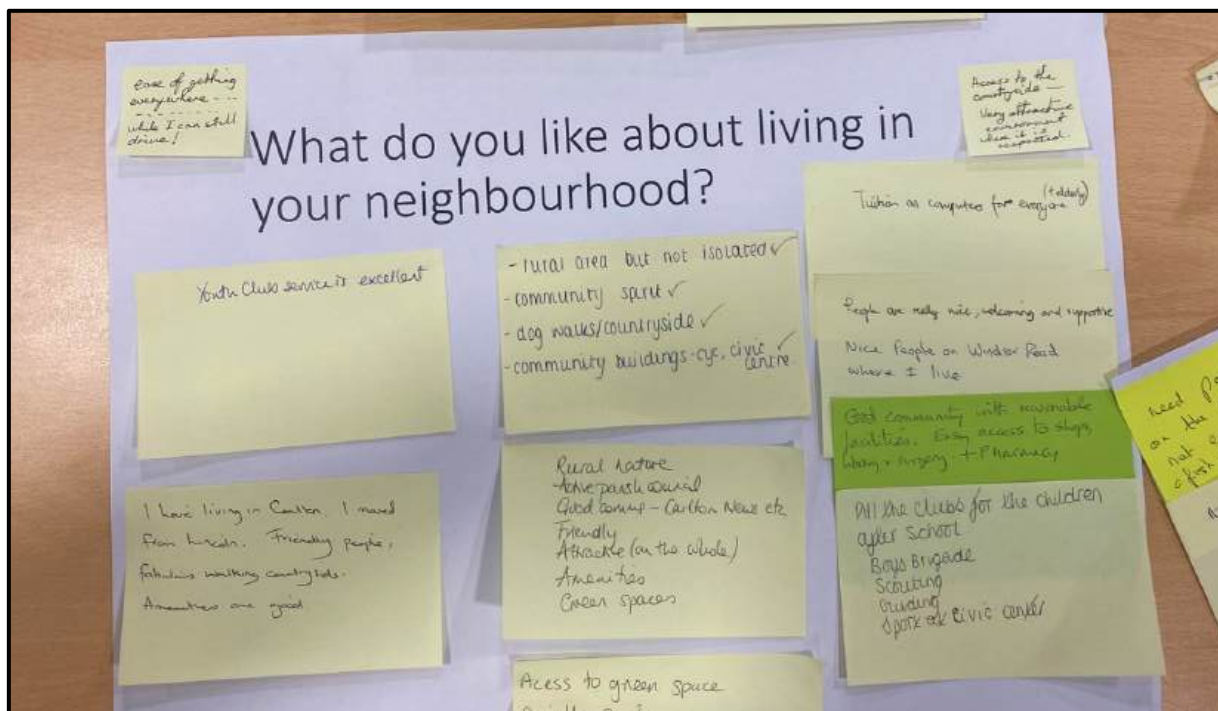 ease of getting
everywhere - - -
while I can still
drive!
Access to the
countryside —
Very attractive
environment
when it is
respected.
What do you like about living in
your neighbourhood?
Youth Club service is excellent
- rural area but not isolated ✓
- community spirit ✓
- dog walks/countryside ✓
- community buildings - cyc, civic
centre. ✓
Tuition on computers for everyone (+ elderly)
People are really nice, welcoming and supportive
Nice People on Windsor Road
where I live
Good community with reasonable
facilities. Easy access to shops,
library + surgery. + Pharmacy
I love living in Carlton. I moved
from Lincoln. Friendly people,
fabulous walking countryside.
Amenities are good.
Rural nature
Active parish council
Good comms - Carlton News etc
Friendly
Attractive (on the whole)
Amenities
Green spaces
All the clubs for the children
after School
Boys Brigade
Scouting
Guiding
Sport Civic Center
Acess to green space
need
on the
not